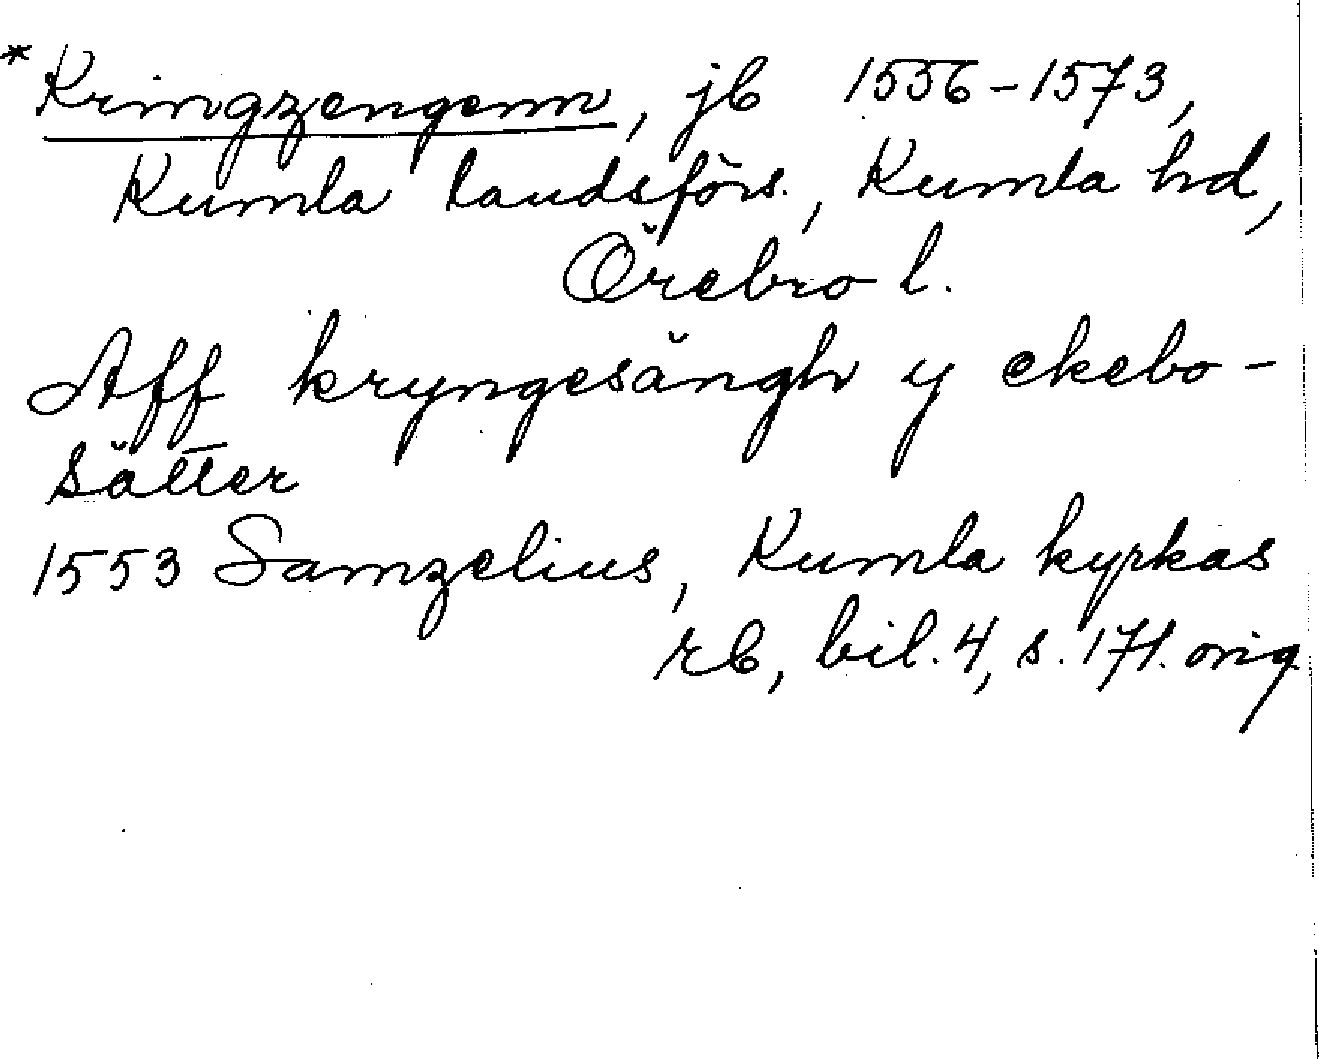 *Kringzengenn, jb 1556-1573,
Kumla landsförs., Kumla hd,
Örebro l.
Aff kryngesängh y ekebo-
sätter
1553 Samzelius, Kumla kyrkas
rb, bil. 4, s. 171. orig.